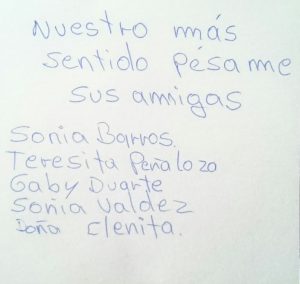 Nuestro más
sentido pésame
sus amigas
Sonia Barros.
Teresita Peñaloza
Gaby Duarte
Soñia Valdez
Doña Clenita.